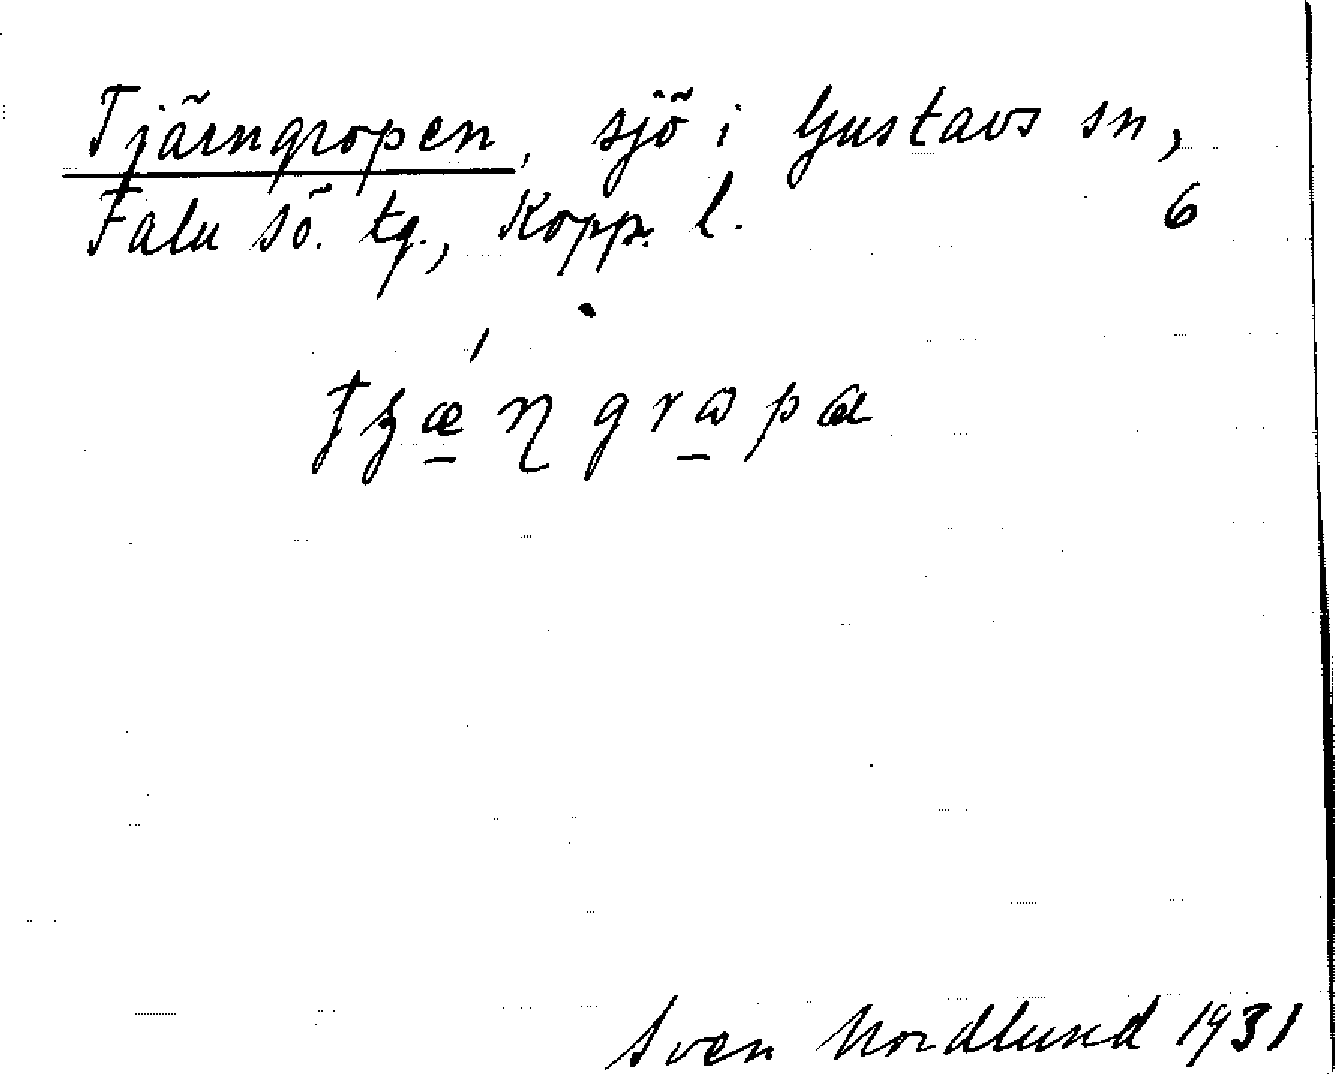 Tjärngropen, sjö i Gustavs sn,
Falu sö. tg., Kopp. l. 6
Sven Nordlund 1931